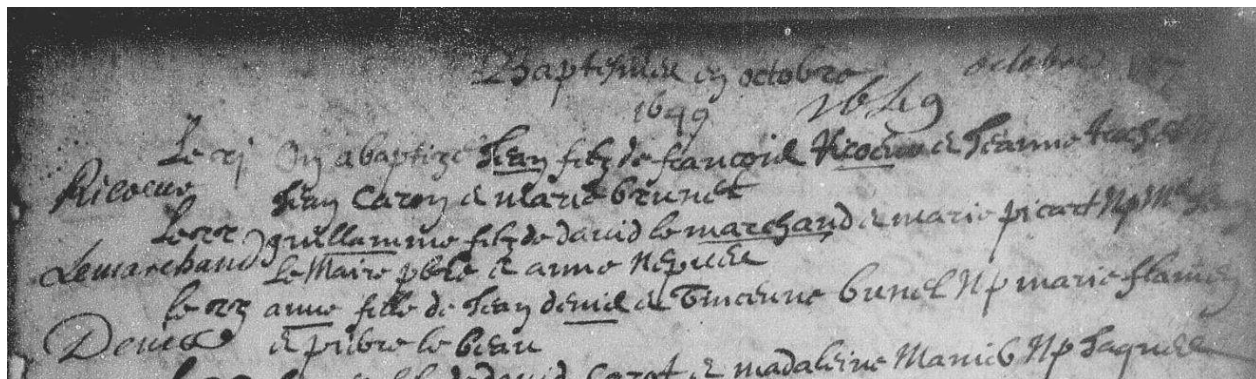 Baptesmes en octobre octobre
1649 1649
Le xj On a baptizé Jean filz de françois Ricoeur & Jeanne
Ricoeur Jean Caron & marie brunet
Le xx guillamme filz de david le marchand & marie picart Np Me
Lemarchand Le Maire pbre & anne
le xx anne fille de Jean denis & Vincenne bunel Np marie flamen
Denis & le beau
de david & madaleine Np Jaques